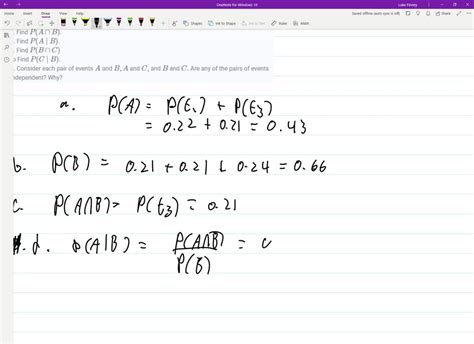 OneNote for Windows 10
Home Insert Draw View Help
Shapes Ink to Shape Ink to Text Math
. Find P(A ∩ B).
. Find P(A | B).
. Find P(B ∩ C)
. Find P(C | B).
. Consider each pair of events A and B, A and C, and B and C. Are any of the pairs of events
ndependent? Why?
a. P(A) = P(E₁) + P(E3)
= 0.22 + 0.21 = 0.43
b. P(B) = 0.21 + 0.21 + 0.24 = 0.66
c. P(A∩B) = P(E3) = 0.21
d. P(A|B) = P(A∩B) / P(B) =